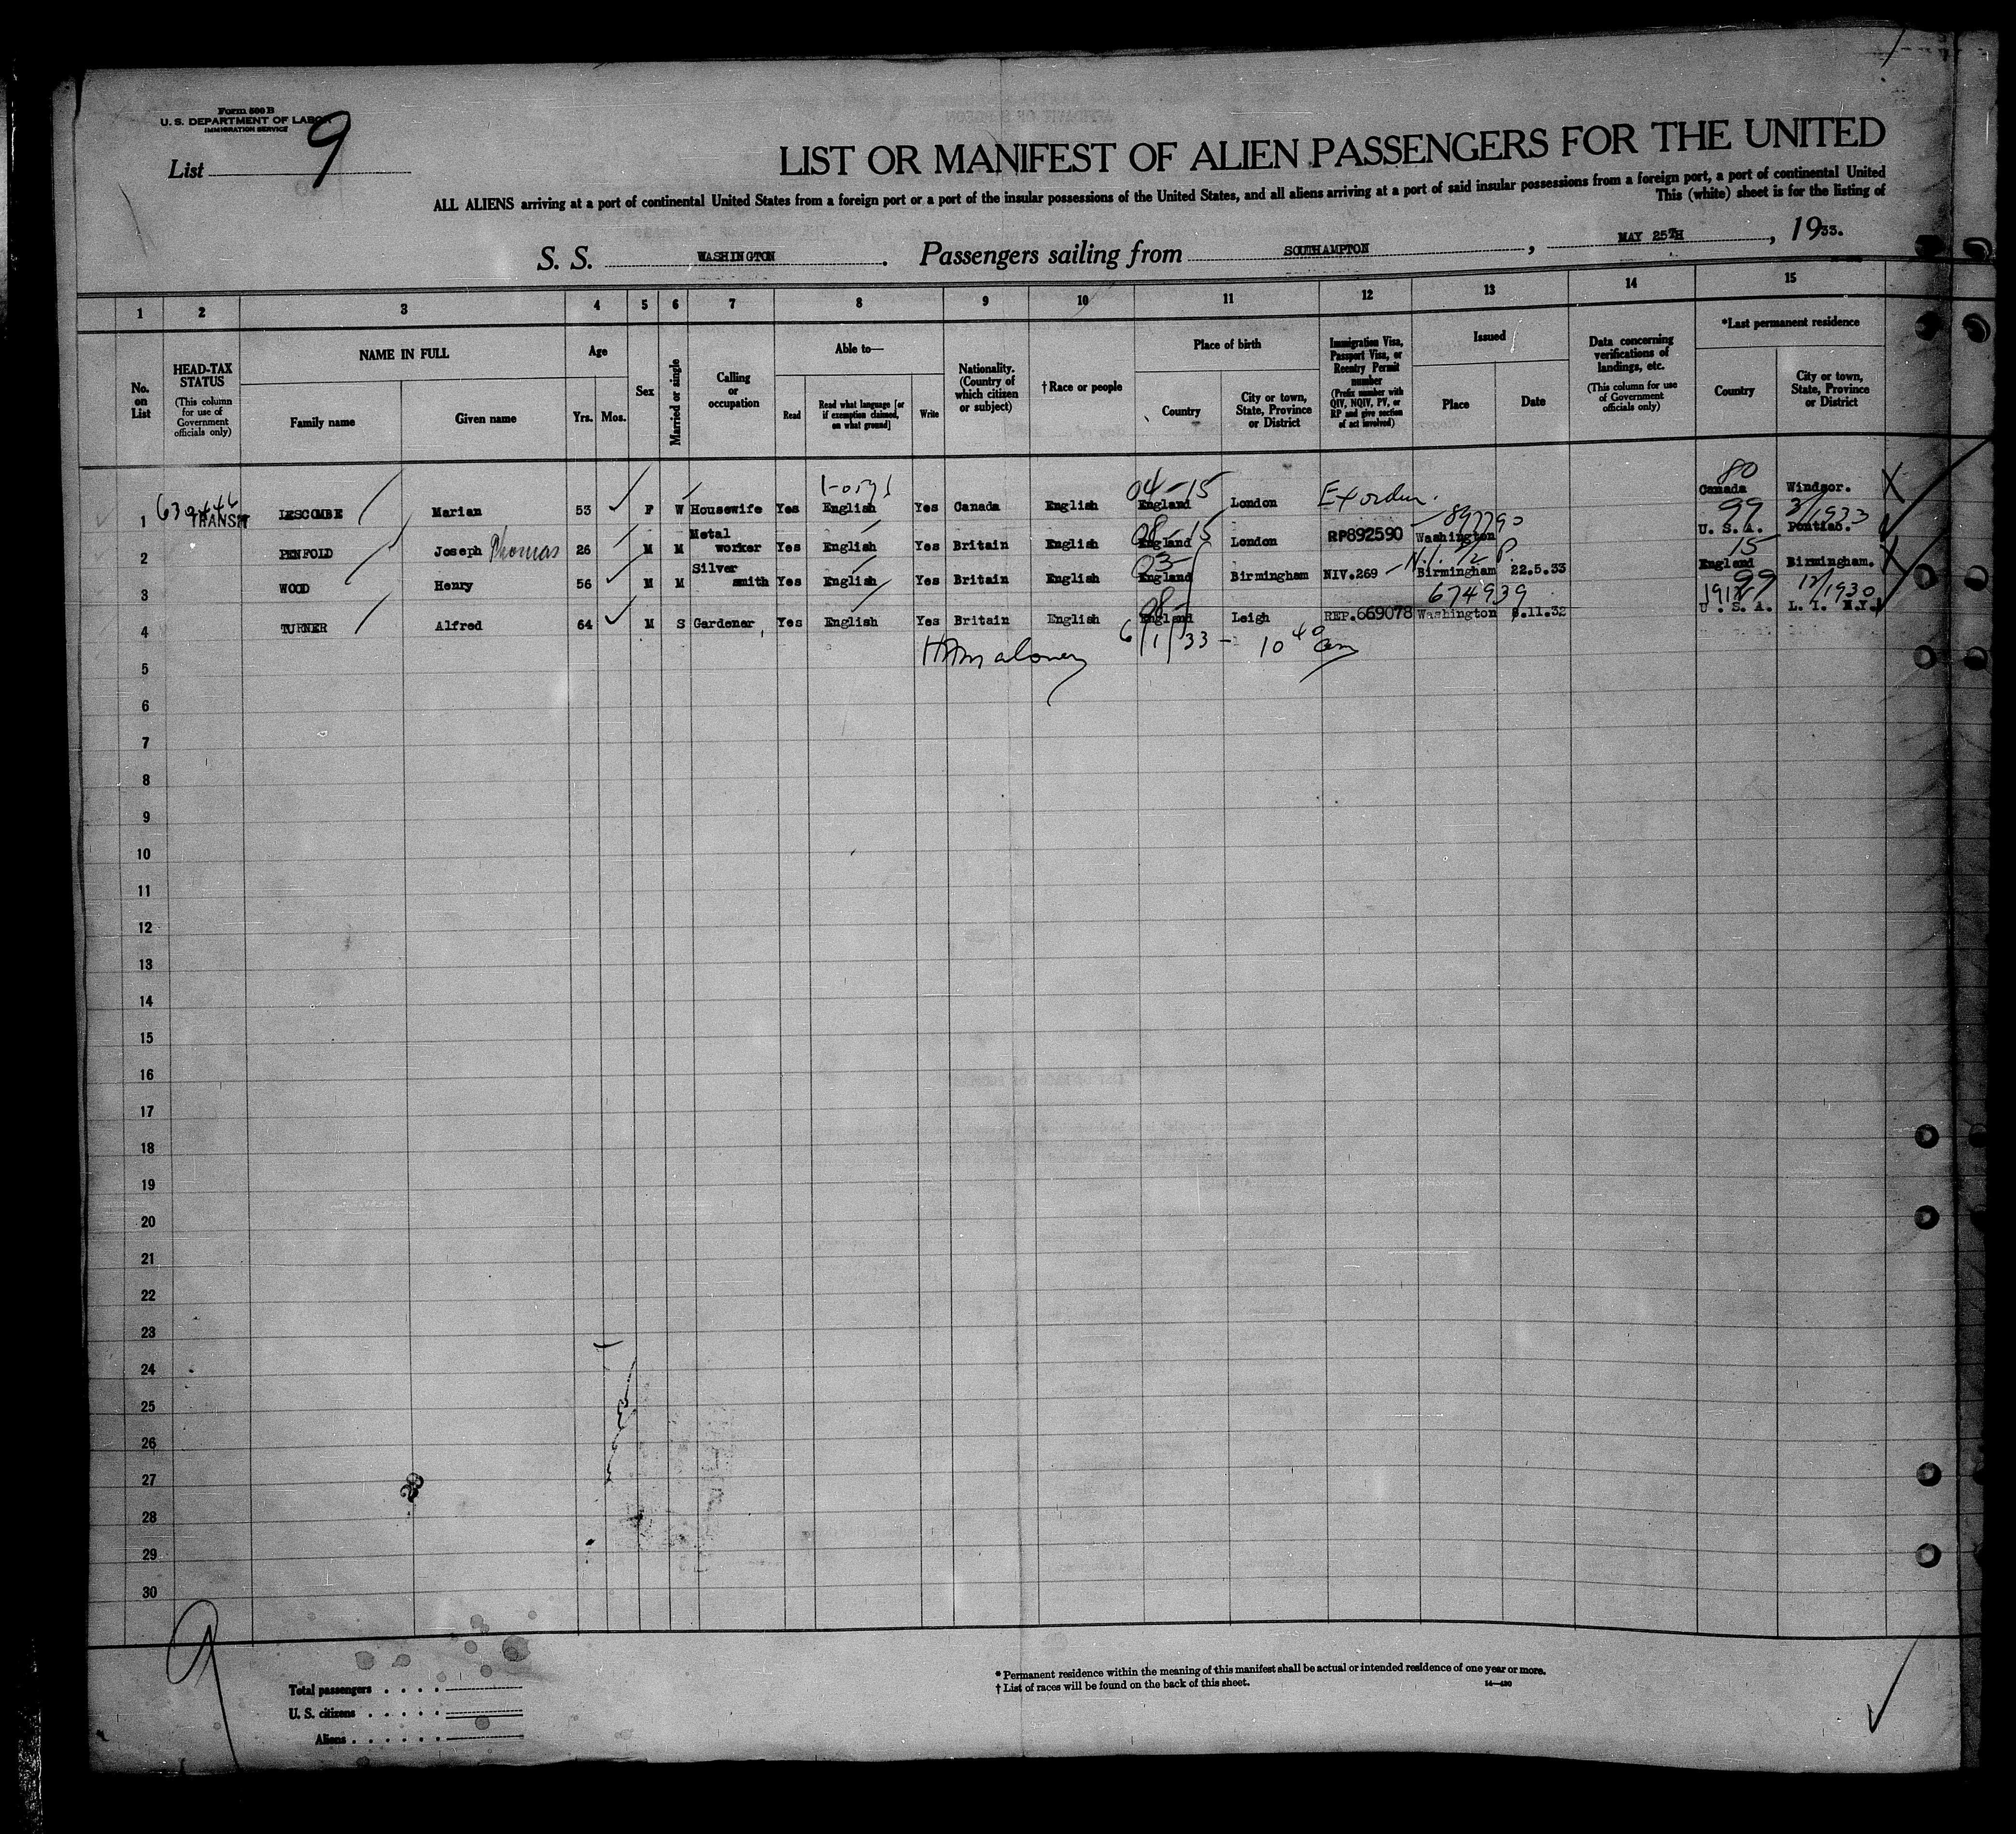 Form 500 B
U. S. DEPARTMENT OF LABOR
IMMIGRATION SERVICE
List 9
LIST OR MANIFEST OF ALIEN PASSENGERS FOR THE UNITED
ALL ALIENS arriving at a port of continental United States from a foreign port or a port of the insular possessions of the United States, and all aliens arriving at a port of said insular possessions from a foreign port, a port of continental United
This (white) sheet is for the listing of
S. S. WASHINGTON. Passengers sailing from SOUTHAMPTON, MAY 25TH, 1933.
1 2 3 4 5 6 7 8 9 10 11 12 13 14 15
No. on List
HEAD-TAX STATUS (This column for use of Government officials only)
NAME IN FULL
Family name Given name
Age
Yrs. Mos.
Sex
Married or single
Calling or occupation
Able to—
Read
Read what language [or if exemption claimed, on what ground]
Write
Nationality. (Country of which citizen or subject)
† Race or people
Place of birth
Country
City or town, State, Province or District
Immigration Visa, Passport Visa, or Reentry Permit number (Prefix number with QIV, NQIV, PV, or RP and give section of act involved)
Issued
Place Date
Data concerning verifications of landings, etc. (This column for use of Government officials only)
*Last permanent residence
Country
City or town, State, Province or District
04-15 80
1 TRANSIT LESCOMBE Marian 53 F W Housewife Yes English Yes Canada English England London Canada Windsor. X
08-15 897790 99 3/1933
2 PENFOLD Joseph Thomas 26 M M Metal worker Yes English Yes Britain English England London RP892590 Washington U. S. A. Pontiac.
03- 15
3 WOOD Henry 56 M M Silver smith Yes English Yes Britain English England Birmingham NIV.269 Birmingham 22.5.33 England Birmingham. X
08- 674939 99 12/1930
4 TURNER Alfred 64 M S Gardener Yes English Yes Britain English England Leigh REP.669078 Washington 8.11.32 U. S. A. L. I. N.Y.
6/1/33 - 10 40 am
5
6
7
8
9
10
11
12
13
14
15
16
17
18
19
20
21
22
23
24
25
26
27
28
29
30
9
Total passengers . . . .
U. S. citizens . . . . .
Aliens . . . . . .
* Permanent residence within the meaning of this manifest shall be actual or intended residence of one year or more.
† List of races will be found on the back of this sheet.
14—430